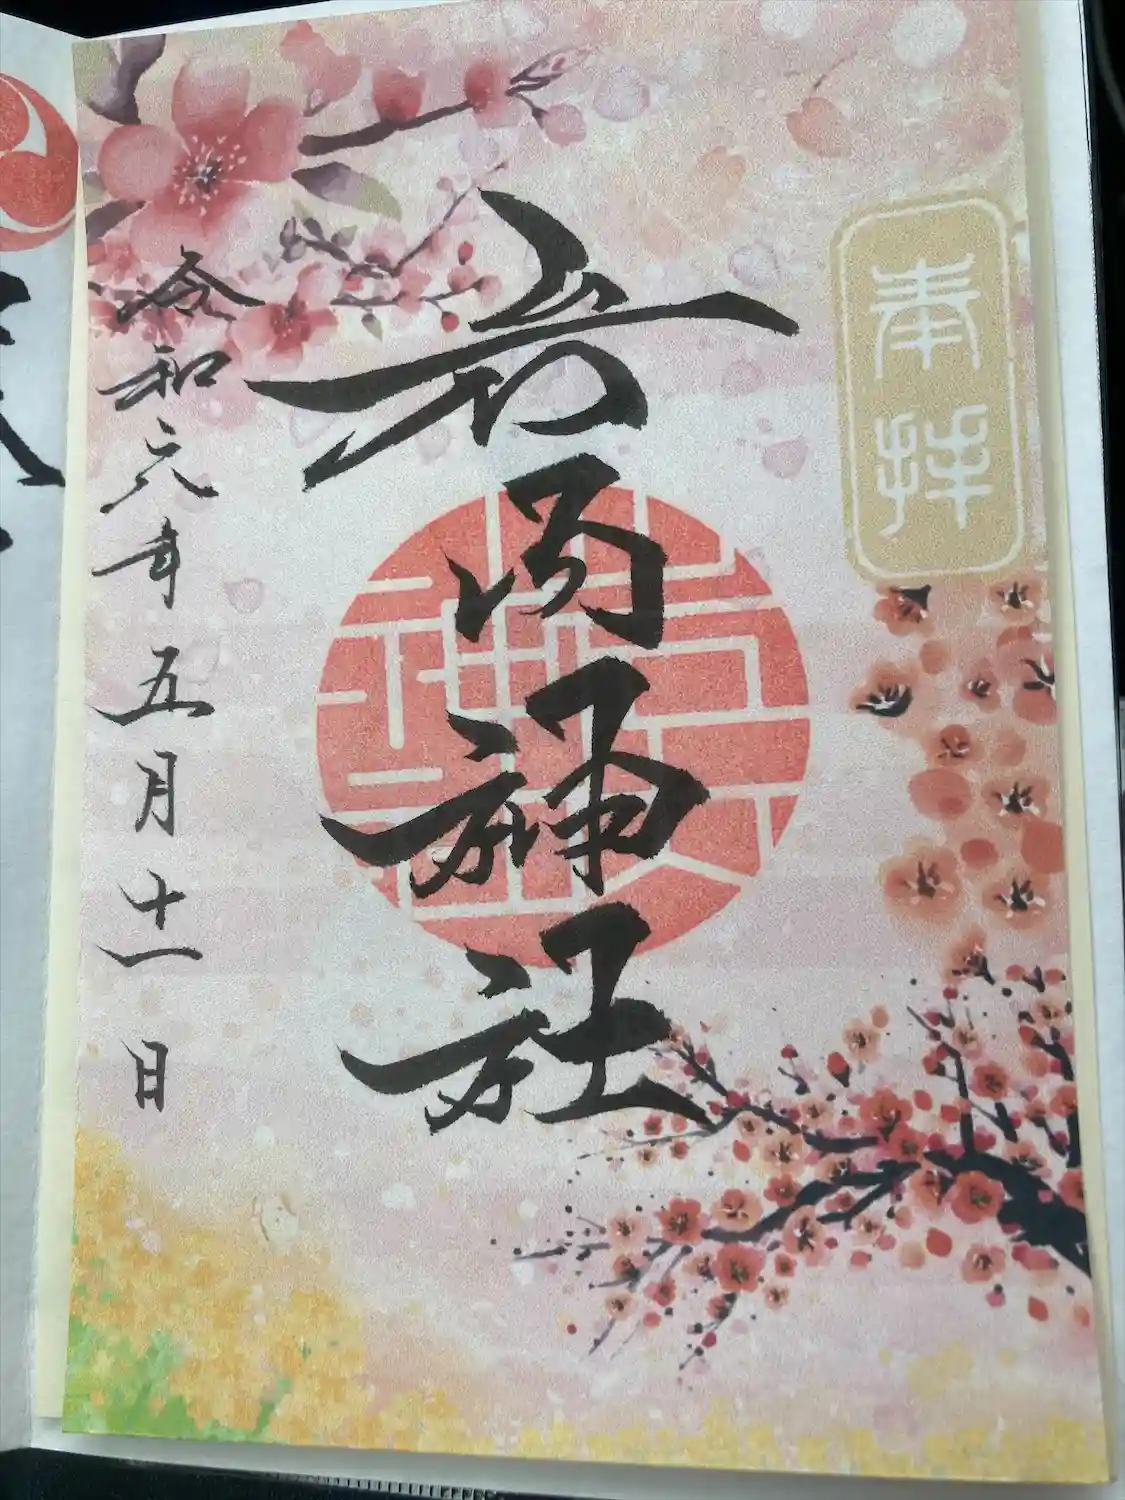 奉拝
神社
令和六年五月十一日